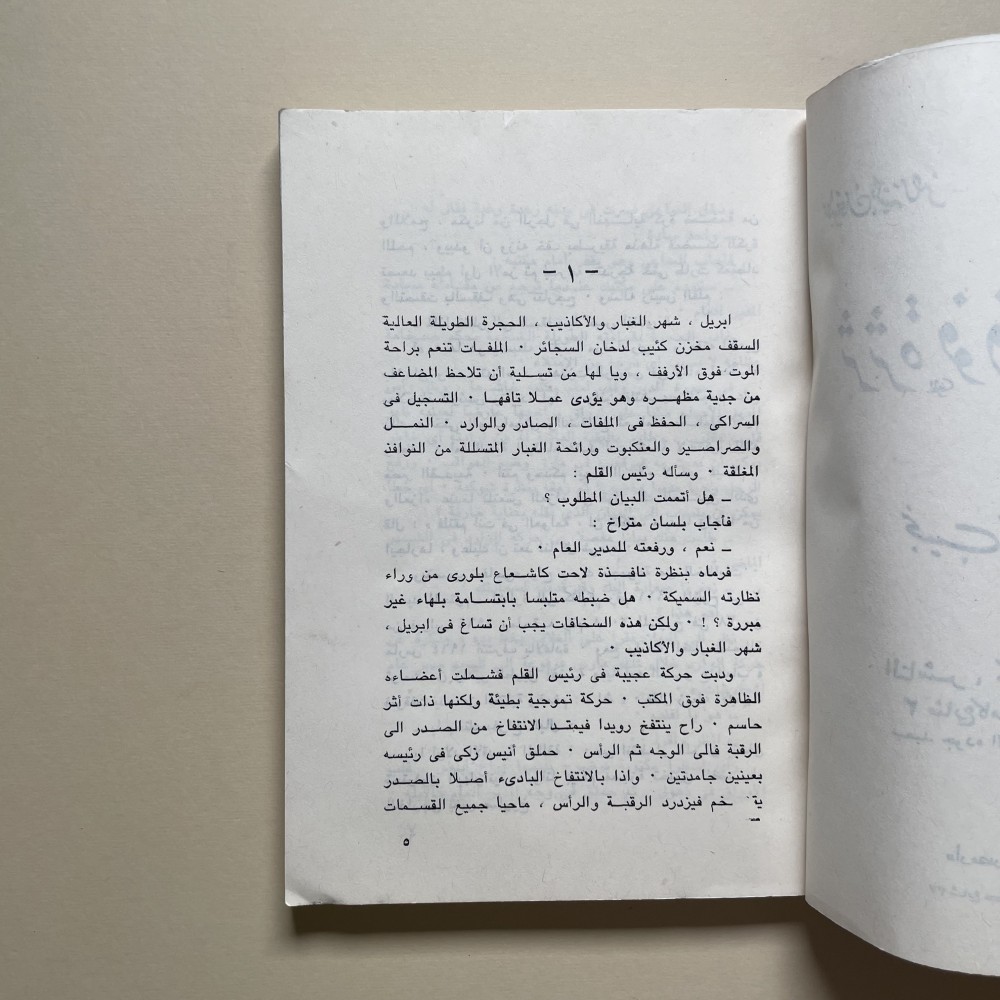 - ١ -
ابريل ، شهر الغبار والأكاذيب ، الحجرة الطويلة العالية
السقف مخزن كئيب لدخان السجائر ٠ الملفات تنعم براحة
الموت فوق الأرفف ، ويا لها من تسلية أن تلاحظ المضاعف
من جدية مظهره وهو يؤدى عملا تافها ٠ التسجيل فى
السراكى ، الحفظ فى الملفات ، الصادر والوارد ٠ النمــل
والصراصير والعنكبوت ورائحة الغبار المتسللة من النوافذ
المغلقة ٠ وسأله رئيس القلم :
ــ هل أتممت البيان المطلوب ؟
فأجاب بلسان متراخ :
ــ نعم ، ورفعته للمدير العام ٠
فرماه بنظرة نافــذة لاحت كاشــعاع بلورى من وراء
نظارته السميكة ٠ هل ضبطه متلبسا بابتسامة بلهاء غير
مبررة ؟ ! ٠ ولكن هذه السخافات يجب أن تساغ فى ابريل ،
شهر الغبار والأكاذيب ٠
ودبت حركة عجيبة فى رئيس القلم فشملت أعضـاءه
الظاهرة فوق المكتب ٠ حركة تموجية بطيئة ولكنها ذات أثر
حاسم ٠ راح ينتفخ رويدا فيمتـد الانتفاخ من الصـدر الى
الرقبة فالى الوجه ثم الرأس ٠ حملق أنيس زكى فى رئيسه
بعينين جامدتين ٠ واذا بالانتفاخ البادىء أصـلا بالصـدر
خم فيزدرد الرقبــة والرأس ، ماحيا جميع القسـمات
٥